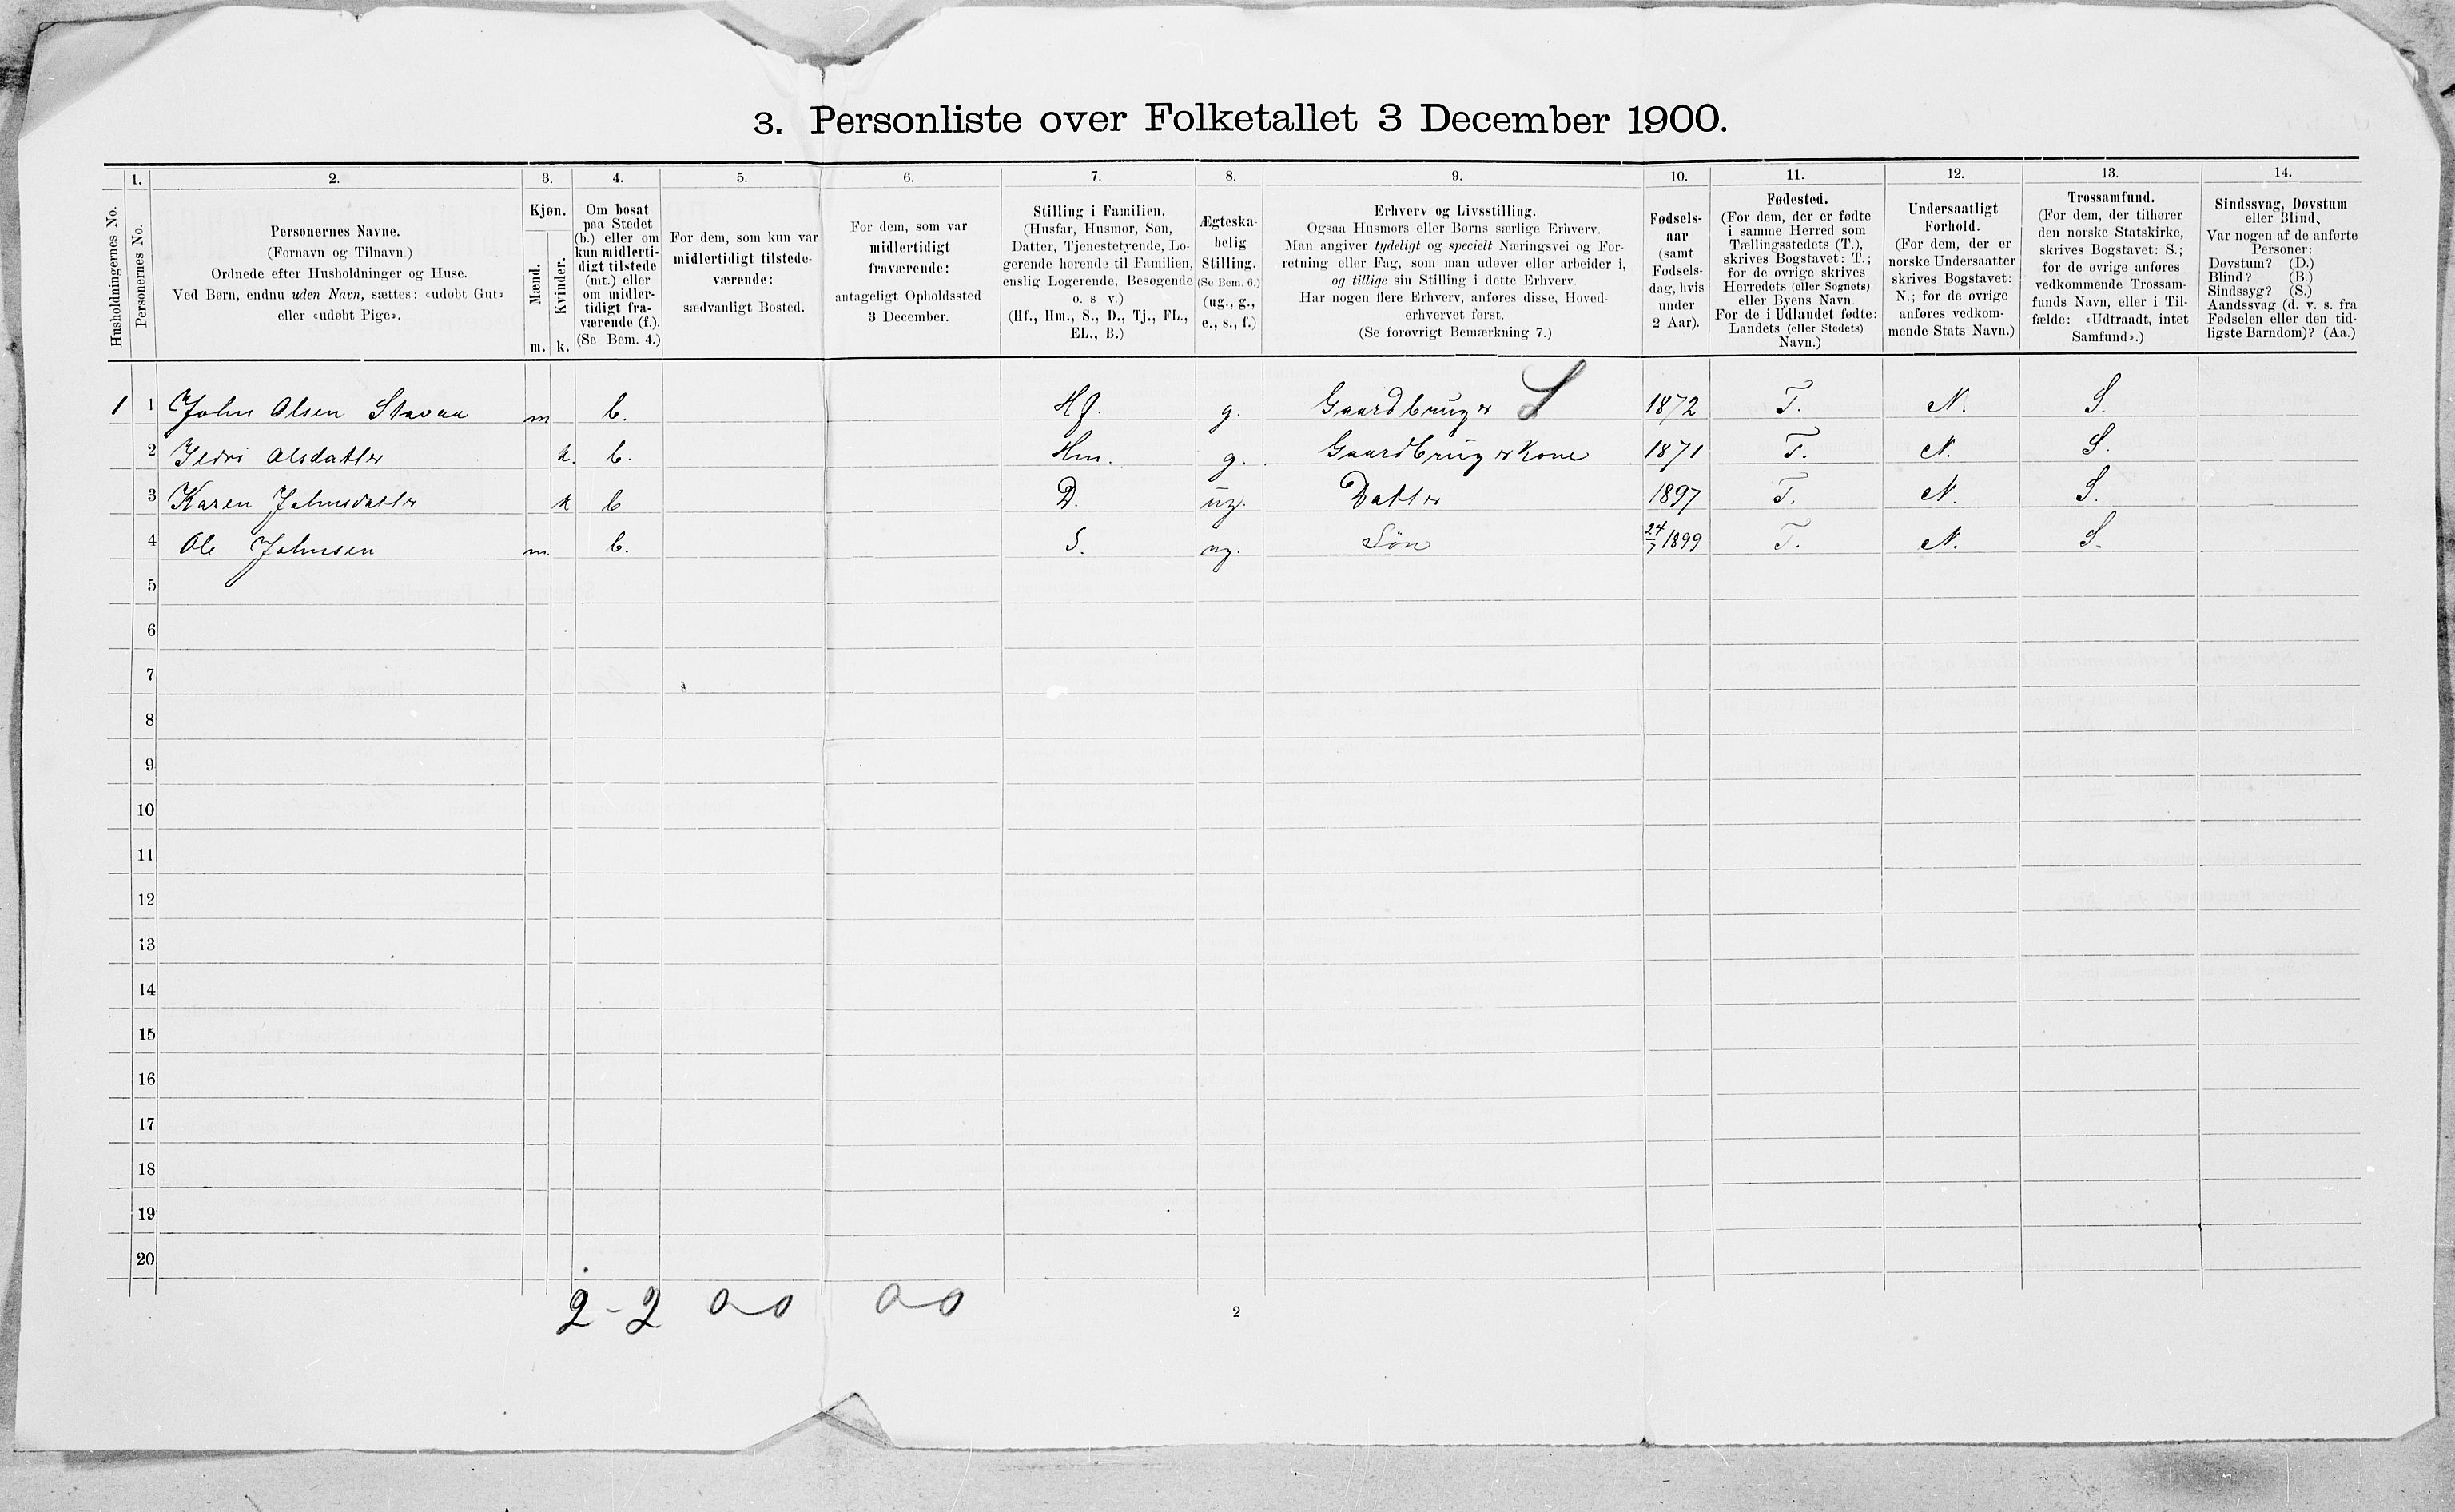 3. Personliste over Folketallet 3 December 1900.
1. 2. 3. 4. 5. 6. 7. 8. 9. 10. 11. 12. 13. 14.
Husholdningernes No.
Personernes No.
Personernes Navne.
(Fornavn og Tilnavn)
Ordnede efter Husholdninger og Huse.
Ved Børn, endnu uden Navn, sættes: «udøbt Gut»
eller «udøbt Pige».
Kjøn.
Mænd.
Kvinder.
m. k.
Om bosat
paa Stedet
(b.) eller om
kun midlerti-
digt tilstede
(mt.) eller
om midler-
tidigt fra-
værende (f.).
(Se Bem. 4.)
For dem, som kun var
midlertidigt tilstede-
værende:
sædvanligt Bosted.
For dem, som var
midlertidigt
fraværende:
antageligt Opholdssted
3 December.
Stilling i Familien.
(Husfar, Husmor, Søn,
Datter, Tjenestetyende, Lo-
gerende hørende til Familien,
enslig Logerende, Besøgende
o. s v.)
(Hf., Hm., S., D., Tj., FL.,
EL., B.)
Ægteska-
belig
Stilling.
(Se Bem. 6.)
(ug., g.,
e., s., f.)
Erhverv og Livsstilling.
Ogsaa Husmors eller Børns særlige Erhverv.
Man angiver tydeligt og specielt Næringsvei og For-
retning eller Fag, som man udøver eller arbeider i,
og tillige sin Stilling i dette Erhverv.
Har nogen flere Erhverv, anføres disse, Hoved-
erhvervet først.
(Se forøvrigt Bemærkning 7.)
Fødsels-
aar
(samt
Fødsels-
dag, hvis
under
2 Aar).
Fødested.
(For dem, der er fødte
i samme Herred som
Tællingsstedets (T.),
skrives Bogstavet: T.;
for de øvrige skrives
Herredets (eller Sognets)
eller Byens Navn.
For de i Udlandet fødte:
Landets (eller Stedets)
Navn.)
Undersaatligt
Forhold.
(For dem, der er
norske Undersaatter
skrives Bogstavet:
N.; for de øvrige
anføres vedkom-
mende Stats Navn.)
Trossamfund.
(For dem, der tilhører
den norske Statskirke,
skrives Bogstavet: S.;
for de øvrige anføres
vedkommende Trossam-
funds Navn, eller i Til-
fælde: «Udtraadt, intet
Samfund».)
Sindssvag, Døvstum
eller Blind.
Var nogen af de anførte
Personer:
Døvstum? (D.)
Blind? (B.)
Sindssyg? (S.)
Aandssvag (d. v. s. fra
Fødselen eller den tid-
ligste Barndom)? (Aa.)
1 1 John Olsen Stavaa m b. Hf. g. Gaardbruger S 1872 T. N. S.
2 Olsdatter k. b. Hm. g. Gaardbrugerkone 1871 T. N. S.
3 Karen Johnsdatter k b D. ug. Datter 1897 T. N. S.
4 Ole Johnsen m. b. S. ug. Søn 24/7 1899 T. N. S.
5
6
7
8
9
10
11
12
13
14
15
16
17
18
19
20
2-2 0-0 0-0
2